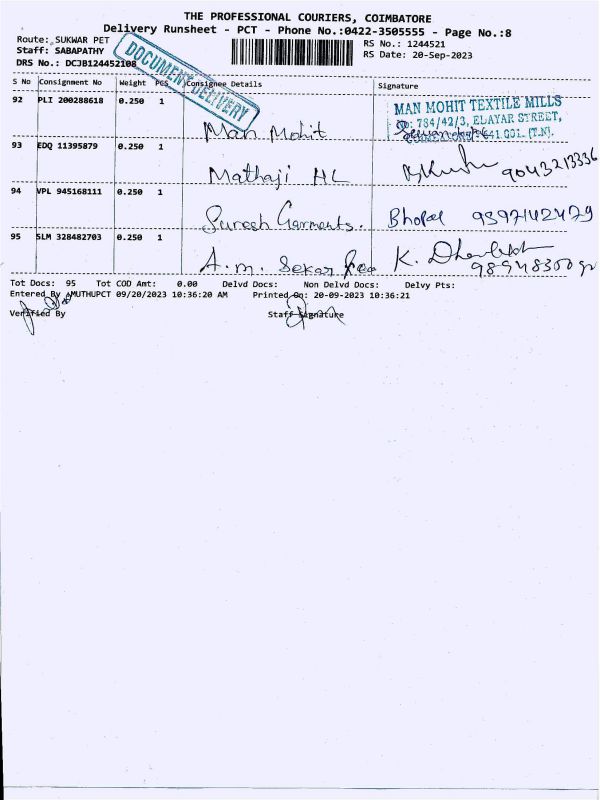 THE PROFESSIONAL COURIERS, COIMBATORE
Delivery Runsheet - PCT - Phone No.:0422-3505555 - Page No.:8
Route: SUKWAR PET
Staff: SABAPATHY
DRS No.: DCJB124452108
DOCUMENT DELIVERY
RS No.: 1244521
RS Date: 20-Sep-2023
S No Consignment No Weight PCS Consignee Details Signature
92 PLI 200288618 0.250 1
Man Mohit
MAN MOHIT TEXTILE MILLS
784/42/3, ELAYAR STREET,
641 001. (T.N).
93 EDQ 11395879 0.250 1
Mathaji HL
9043213336
94 VPL 945168111 0.250 1
Suresh Garments. Bhopal
95 SLM 328482703 0.250 1
A.m. Sekar K.
Tot Docs: 95 Tot COD Amt: 0.00 Delvd Docs: Non Delvd Docs: Delvy Pts:
Entered By AMUTHUPCT 09/20/2023 10:36:20 AM Printed On: 20-09-2023 10:36:21
Verified By Staff Signature